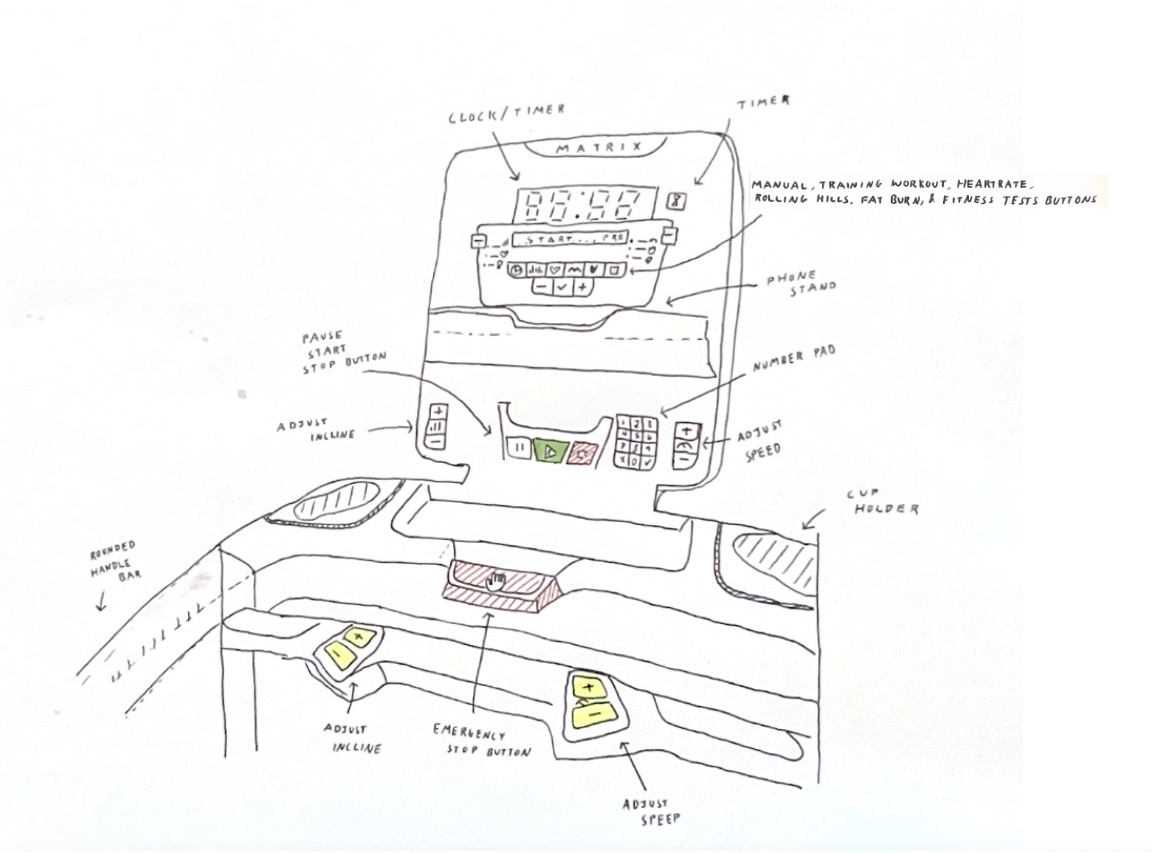 CLOCK/TIMER
TIMER
MATRIX
MANUAL, TRAINING WORKOUT, HEARTRATE,
ROLLING HILLS, FAT BURN, & FITNESS TESTS BUTTONS
88:88
8
START... PRE
PHONE
STAND
PAUSE
START
STOP BUTTON
NUMBER PAD
ADJUST
INCLINE
1 2 3
4 5 6
7 8 9
0
ADJUST
SPEED
CUP
HOLDER
ROUNDED
HANDLE
BAR
ADJUST
INCLINE
EMERGENCY
STOP BUTTON
ADJUST
SPEED